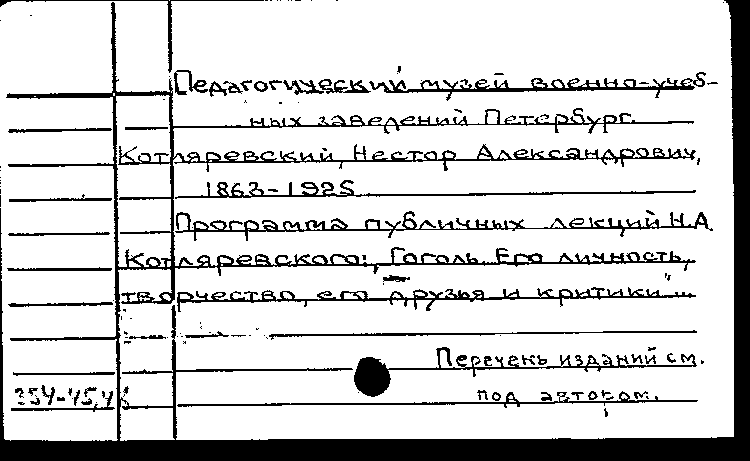 Педагогический музей военно-учеб-
ных заведений Петербург.
Котляревский, Нестор Александрович,
1863-1925
Программа публичных лекций Н.А.
Котляревского: „Гоголь. Его личность,
творчество, его друзья и критики"...
Перечень изданий см.
под автором.